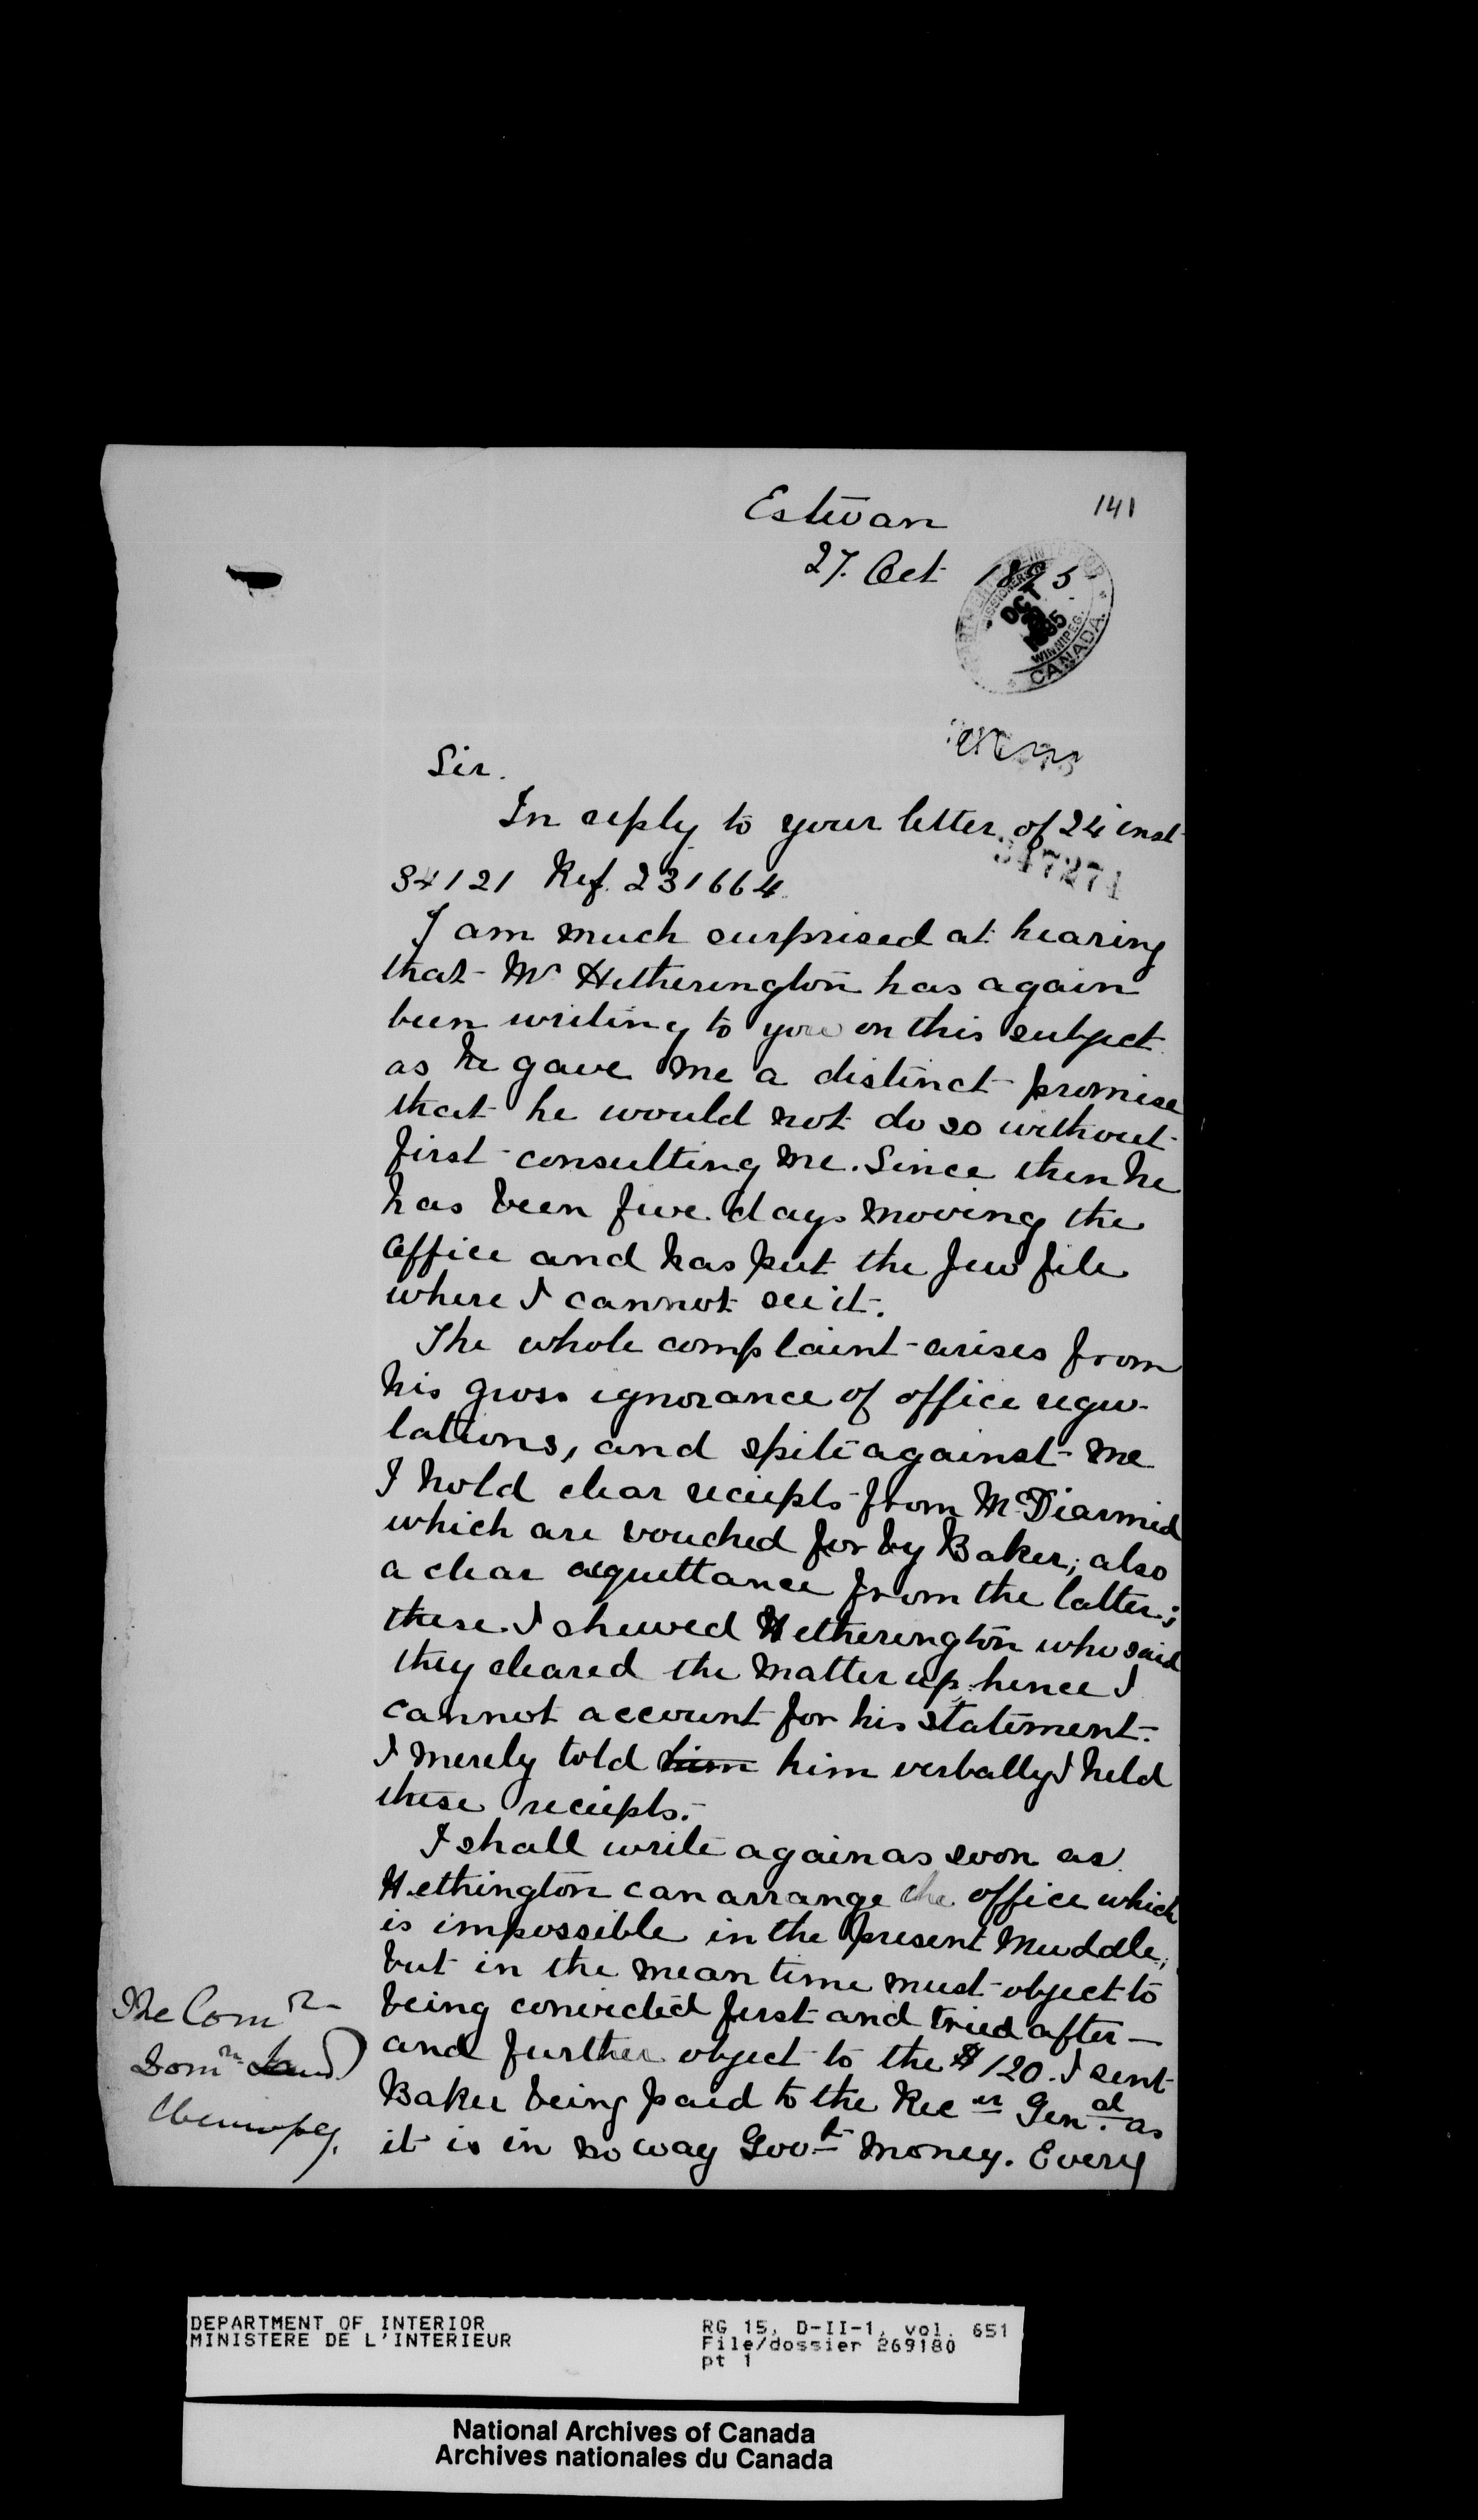 141
Estevan
27. Oct 1895
OCT
29
1895
WINNIPEG.
CANADA.
Sir.
In reply to your letter of 24 inst
347271
34121 Ref. 231664
I am much surprised at hearing
that Mr Hetherington has again
been writing to you on this subject
as he gave me a distinct promise
that he would not do so without
first consulting me. Since then he
has been five days moving the
office and has put the few file
where I cannot see it.
The whole complaint arises from
his gross ignorance of office regu-
lations, and spite against me
I hold clear reciepts from McDiarmid
which are vouched for by Baker; also
a clear acquittance from the latter;
these I shewed Hetherington who said
they cleared the matter up, hence I
cannot account for his statement.
I merely told him him verbally I held
these reciepts.
I shall write again as soon as
Hethington can arrange the office which
is impossible in the present muddle,
but in the mean time must object to
being convicted first and tried after —
and further object to the $120. I sent
Baker being paid to the Recer Genal. as
it is in no way Govt money. Every
The Comr
Domn Land
Winnipeg.
DEPARTMENT OF INTERIOR
MINISTERE DE L'INTERIEUR
RG 15, D-II-1, vol. 651
File/dossier 269180
pt 1
National Archives of Canada
Archives nationales du Canada